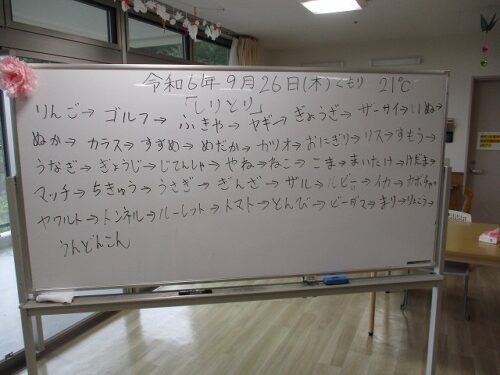 令和6年9月26日(木)くもり 21℃
「しりとり」
りんご→ゴルフ→ふきや→ヤギ→ぎょうざ→ザーサイ→いぬ→
ぬか→カラス→すずめ→めだか→カツオ→おにぎり→リス→すもう→
うなぎ→ぎょうじ→じてんしゃ→やね→ねこ→こま→まいたけ→けだま→
マッチ→ちきゅう→うさぎ→ぎんざ→ザル→ルビー→イカ→カボチャ→
ヤクルト→トンネル→ルーレット→トマト→とんび→ビーダマ→まり→りょこう→
うんどんこん